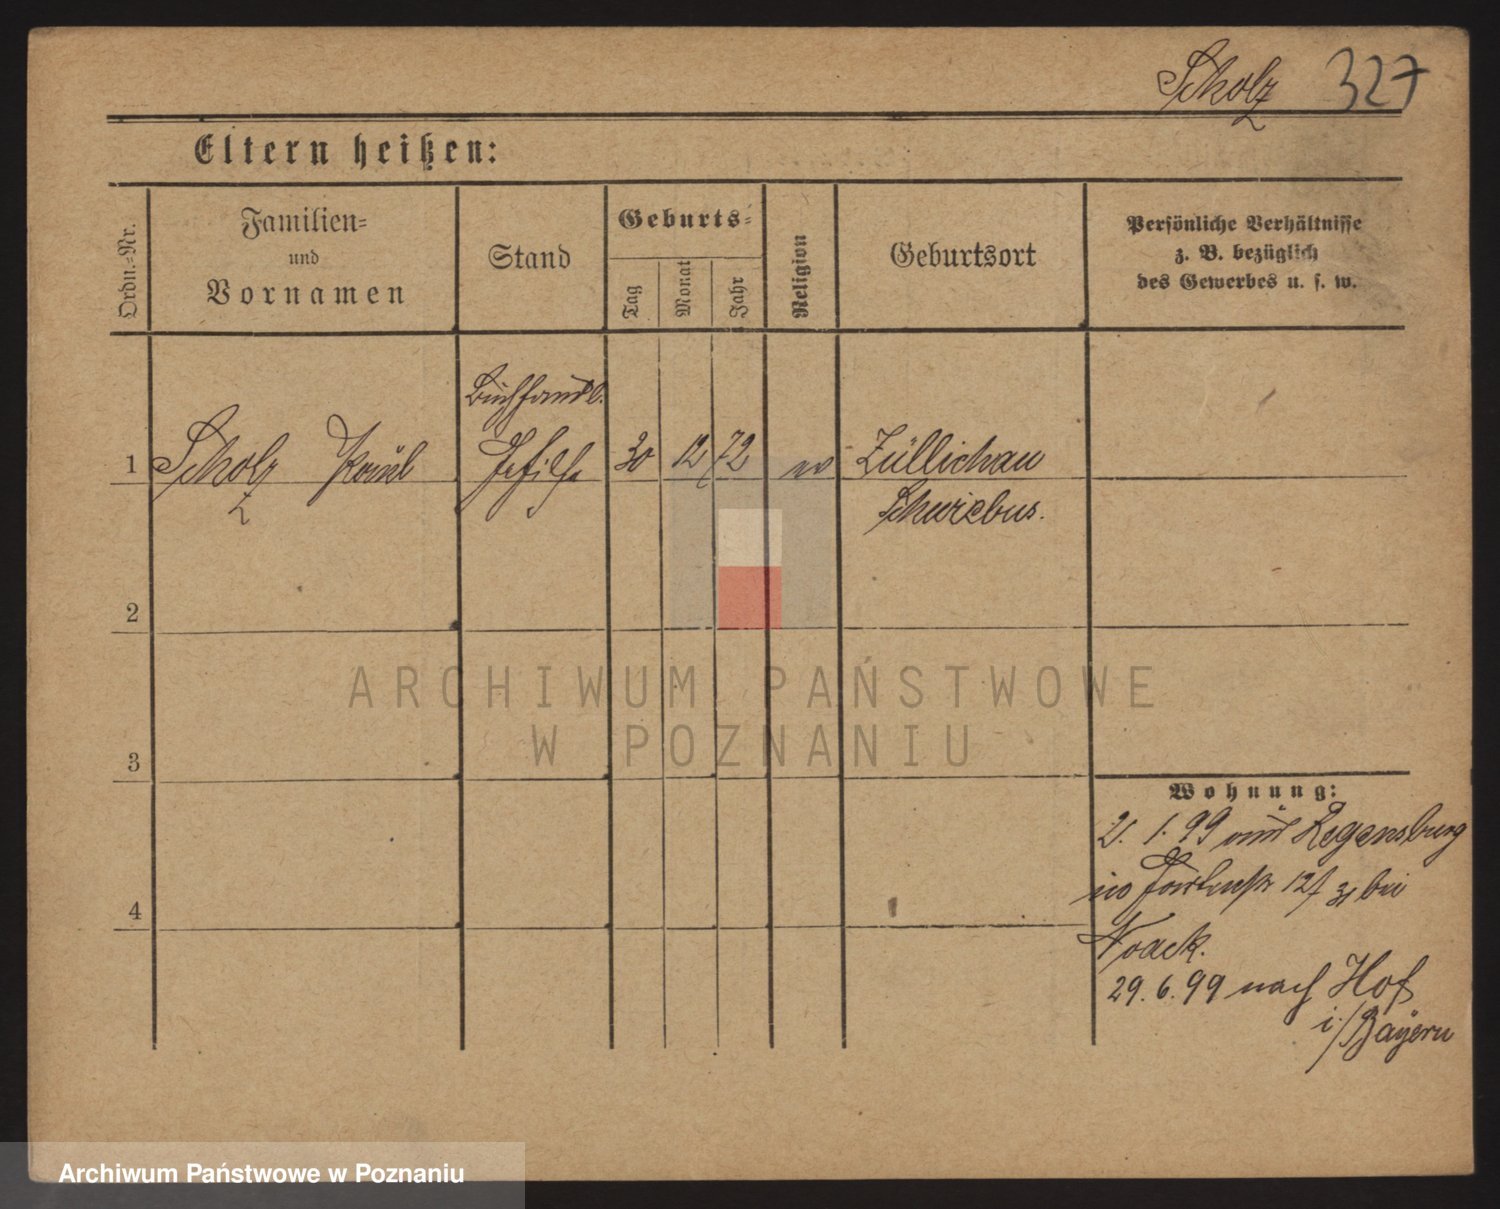 Scholz 327
Eltern heißen:
Ordn.-Nr.
Familien-
und
Vornamen
Stand
Geburts-
Tag
Monat
Jahr
Religion
Geburtsort
Persönliche Verhältnisse
z. B. bezüglich
des Gewerbes u. s. w.
Buchhandl.
1 Scholz Gehilfe 30 12 72 ev Züllichau
Schwiebus.
2
3
4
Wohnung:
21. 1. 99 aus Regensburg
12/31 bei
Noack.
29. 6. 99 nach Hof
i/Bayern
ARCHIWUM PAŃSTWOWE
W POZNANIU
Archiwum Państwowe w Poznaniu